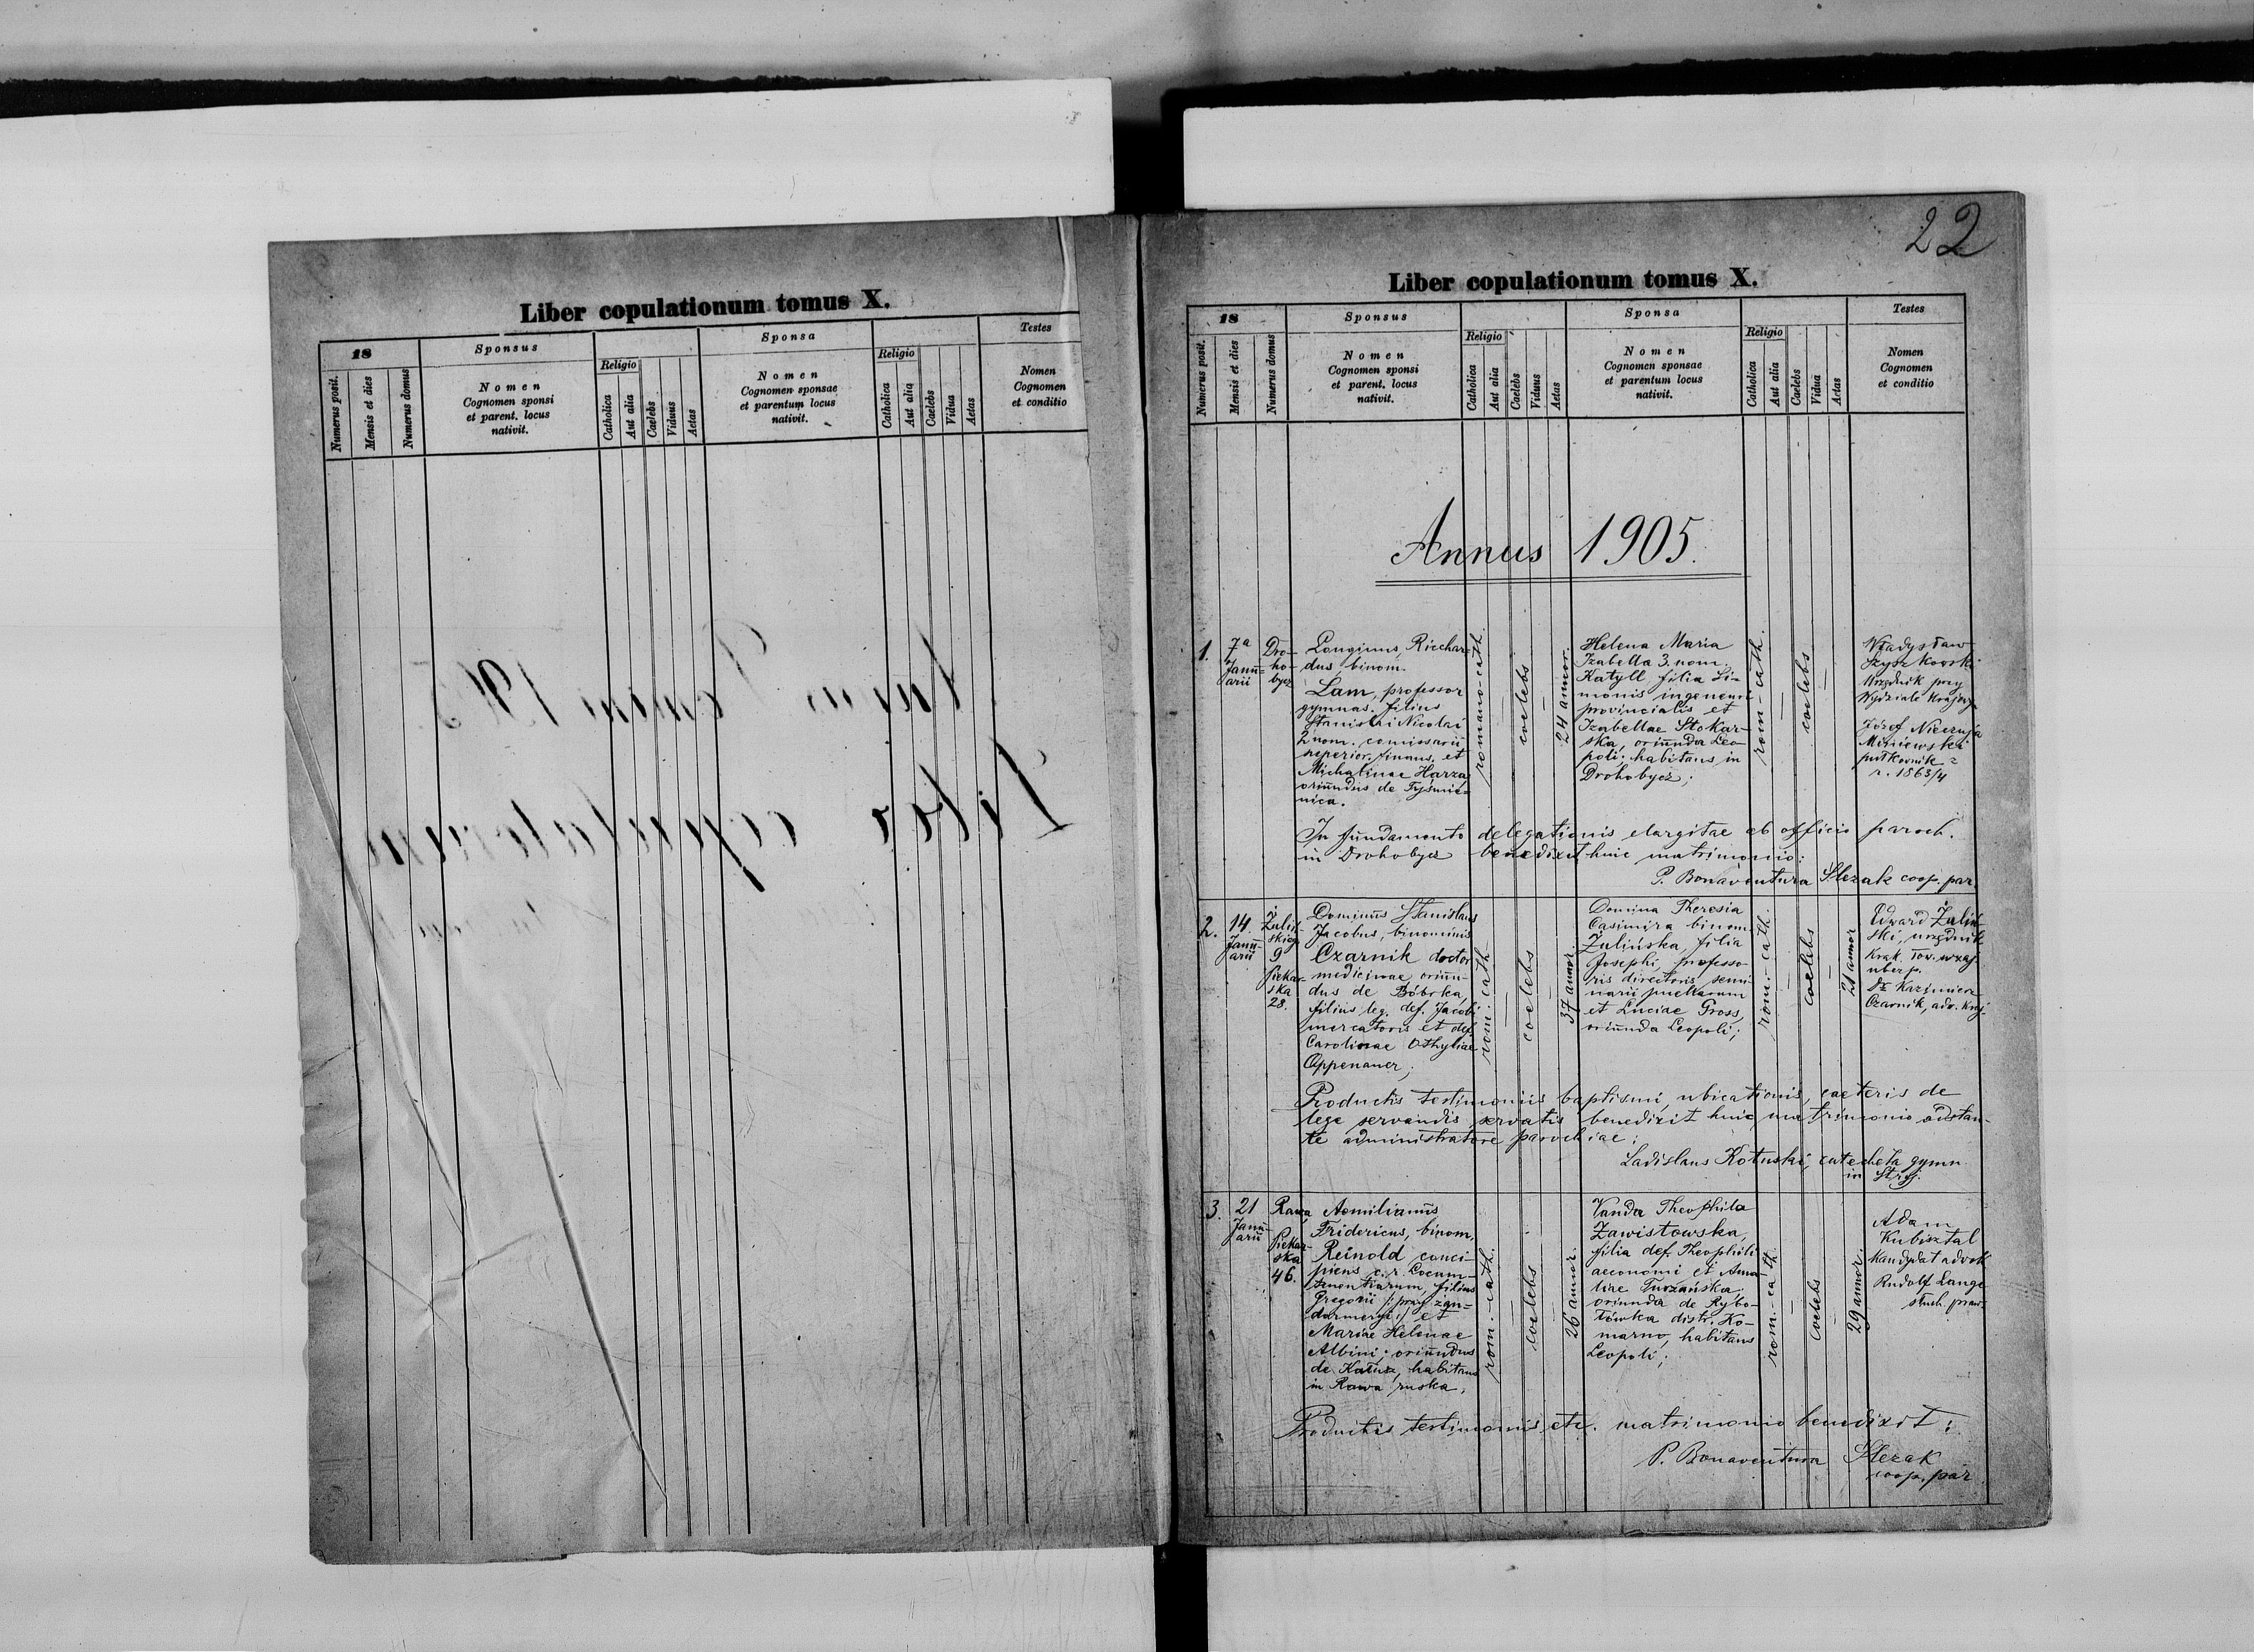 Liber copulationum tomus X.
18
Sponsus
Sponsa
Testes
Numerus posit.
Mensis et dies
Numerus domus
Nomen
Cognomen sponsi
et parent. locus
nativit.
Religio
Catholica
Aut alia
Caelebs
Viduus
Aetas
Nomen
Cognomen sponsae
et parentum locus
nativit.
Religio
Catholica
Aut alia
Caelebs
Vidua
Aetas
Nomen
Cognomen
et conditio
22
Liber copulationum tomus X.
18
Sponsus
Sponsa
Testes
Numerus posit.
Mensis et dies
Numerus domus
Nomen
Cognomen sponsi
et parent. locus
nativit.
Religio
Catholica
Aut alia
Caelebs
Viduus
Aetas
Nomen
Cognomen sponsae
et parentum locus
nativit.
Religio
Catholica
Aut alia
Caelebs
Vidua
Aetas
Nomen
Cognomen
et conditio
Annus 1905.
1.
7a
Janu-
arii
Dro-
ho-
bycz
Longinus, Ricchar-
dus binom.
Lam, professor
gymnas. filius
Stanislai Nicolai
2 nom. comissarii
superior. finans. et
Michalinae Harza,
oriundus de Tyśmie-
nica.
romano-cath.
coelebs
24 annor.
Helena Maria
Izabella 3. nom.
Katyll filia Si-
monis ingenieur
provincialis et
Izabellae Stokar-
ska, oriunda Leo-
poli, habitans in
Drohobycz;
rom.-cath.
coelebs
Władysław
Szyszkowski
Urzędnik przy
Wydziale Krajow.
Józef Nieczuja
Miniewski
pułkownik z
r. 1863/4
In fundamento delegationis elargitae ab officio paroch.
in Drohobycz benedixit huic matrimonio:
P. Bonaventura Ślezak coop. par.
2.
14.
Janu-
arii
Żuliń-
skieg.
9
Piekar-
ska
28.
Dominus Stanislaus
Jacobus, binominis
Czarnik doctor
medicinae oriun-
dus de Bóbrka,
filius leg. def. Jacobi
mercatoris et def.
Carolinae Othyliae
Appenauer;
rom.-cath.
coelebs
37 annor.
Domina Theresia
Casimira binom.
Żulińska, filia
Josephi, professo-
ris directoris semi-
narii puellarum
et Luciae Gross,
oriunda Leopoli;
rom.-cath.
coelebs
21 annor
Edward Żuliń-
ski, urzędnik
Krak. Tow. wzaj.
ubezp.
Dr. Kazimierz
Czarnik, adv. Kraj.
Productis testimoniis baptismi, ubicationis, caeteris de
lege servandis servatis benedixit huic matrimonio adstan-
te administratore parochiae:
Ladislaus Kotuski, catecheta gymn
in Stryj.
3.
21
Janu-
arii
Rawa
Piekar-
ska
46.
Aemilianus
Fridericus, binom.
Reinold conci-
piens c.r.
filius
Gregorii /: przy żan-
darmeryi :/ et
Mariae Helenae
Albini; oriundus
de Kałusz, habitans
in Rawa ruska,
rom.-cath.
coelebs
26 annor.
Vanda Theophila
Zawistowska,
filia def. Theophili
aeconomi et Ama-
liae Turzańska
oriunda de Rybo-
tówka distr. Ko-
marno, habitans
Leopoli;
rom.-cath.
coelebs
29 annor.
Adam
Kubisztal
Kandydat adwok
Rudolf Lange
słuch. praw.
Productis testimoniis etc. matrimonio benedixit:
P. Bonaventura Ślezak
coop. par